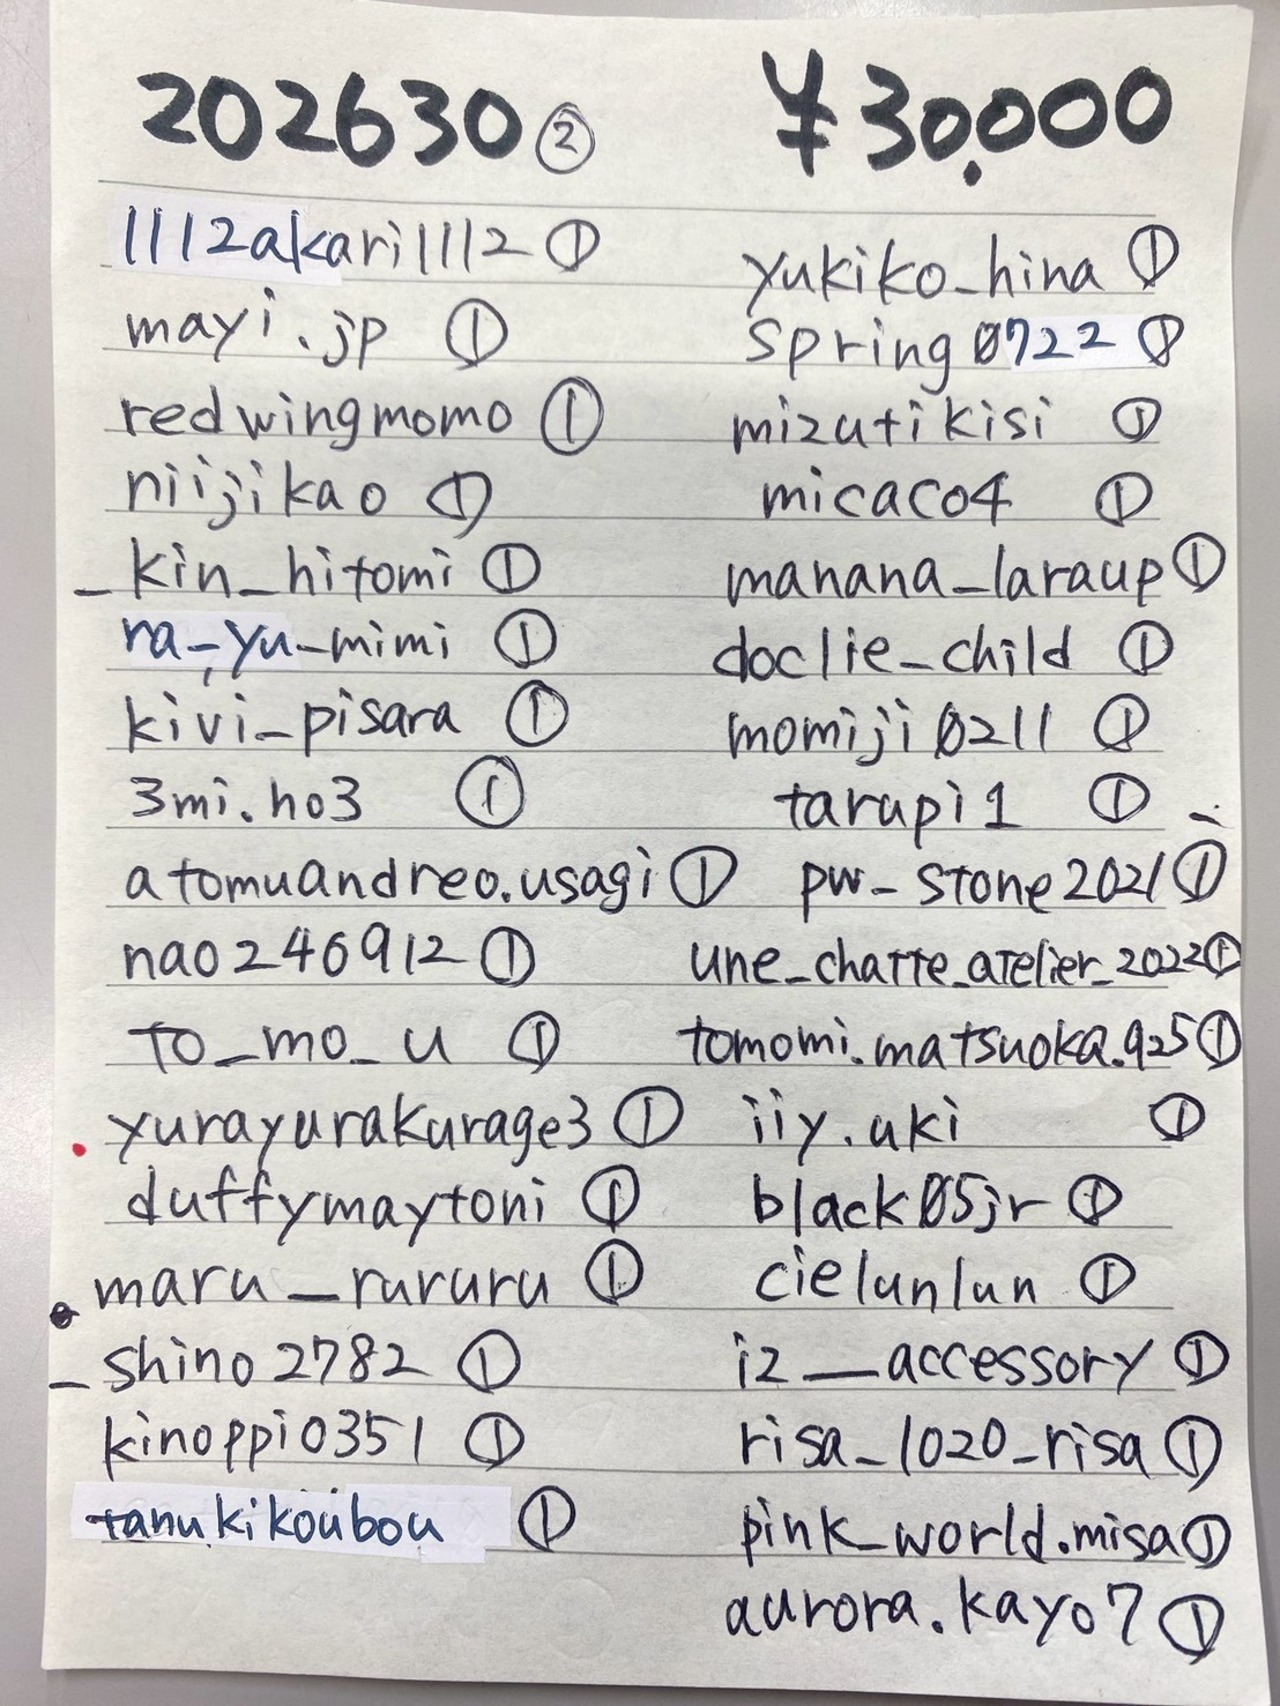 202630② ¥30,000
1112akari1112①
mayi.jp ①
redwingmomo①
niijikao ①
_kin_hitomi①
ra_yu_mimi ①
kivi_pisara ①
3mi.ho3 ①
atomuandreo.usagi①
nao246912①
to_mo_u ①
yurayurakurage3①
duffymaytoni ①
maru_rururu ①
_shino2782 ①
kinoppi0351 ①
tanukikoubou ①
yukiko_hina ①
spring0722 ①
mizutikisi ①
micaco4 ①
manana_laraup①
doclie_child ①
momiji0211 ①
tarupi1 ①
pw_stone2021①
une_chatte_atelier_2022①
tomomi.matsuoka.925①
iiy.uki ①
black05jr ①
cielunlun ①
iz__accessory ①
risa_1020_risa①
pink_world.misa①
aurora.kayo7①